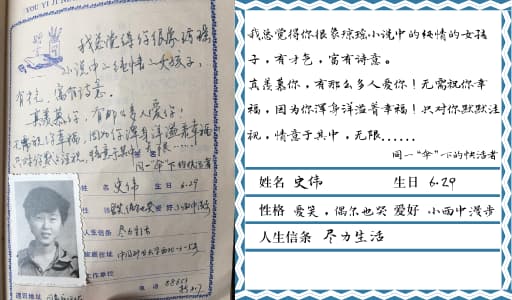 YOU YI JI N
我总觉得你很象琼瑶
小说中的纯情的女孩子，
有才艺，富有诗意。
真羡慕你，有那么多人爱你！
无需祝你幸福，因为你浑身洋溢着幸福
只对你默默注视，情意于其中，无限……
同一“伞”下的快活者
姓 名 史伟 生 日 6.29
性 格 爱笑，偶尔也哭 爱好 小雨中漫步
人生信条 尽力生活
家庭住址
工作单位
电 话
通讯地址
我总觉得你很象琼瑶小说中的纯情的女孩
子，有才艺，富有诗意。
真羡慕你，有那么多人爱你！无需祝你幸
福，因为你浑身洋溢着幸福！只对你默默注
视，情意于其中，无限……
同一“伞”下的快活者
姓名 史伟 生日 6.29
性格 爱笑，偶尔也哭 爱好 小雨中漫步
人生信条 尽力生活